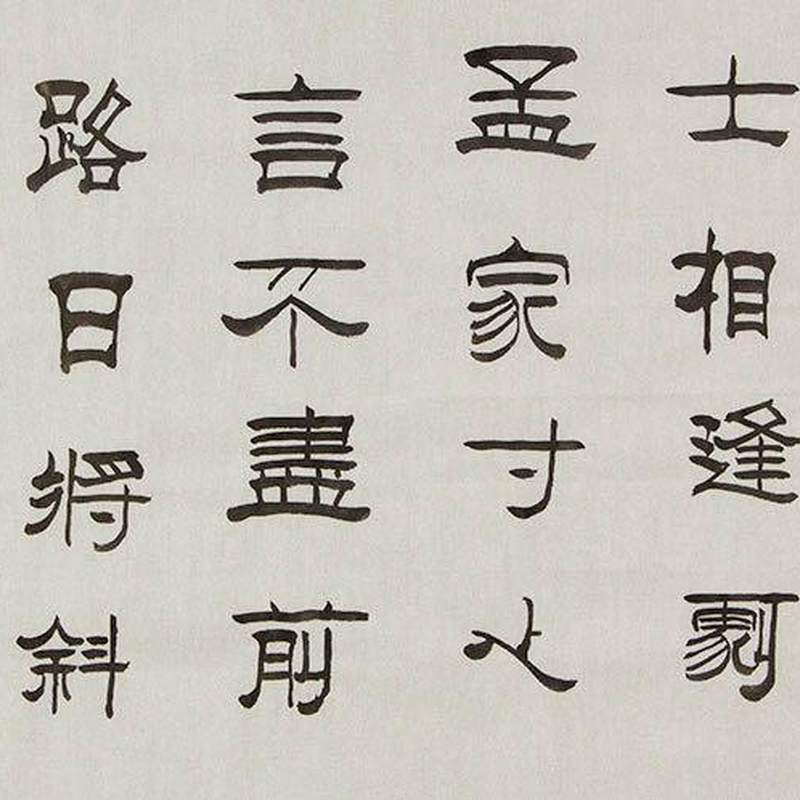 士相逢劇
孟家寸心
言不盡前
路日將斜